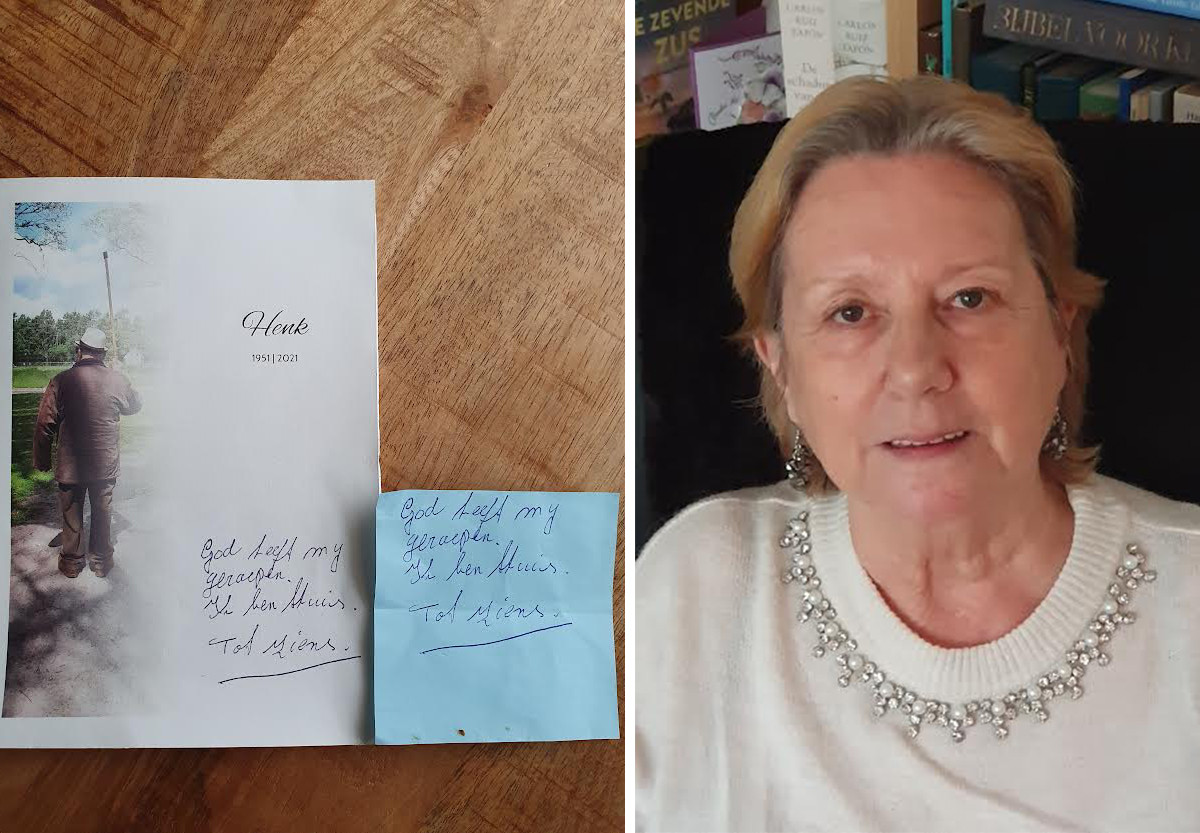 Henk
1951 | 2021
God heeft my
geroepen.
Ik ben thuis.
Tot ziens.
God heeft my
geroepen.
Ik ben thuis.
Tot ziens.
E ZEVENDE
ZUS
CARLOS
RUIZ
ZAFÓN
De
schaduw
van
CARLOS
RUIZ
ZAFÓN
BIJBEL VOOR KI